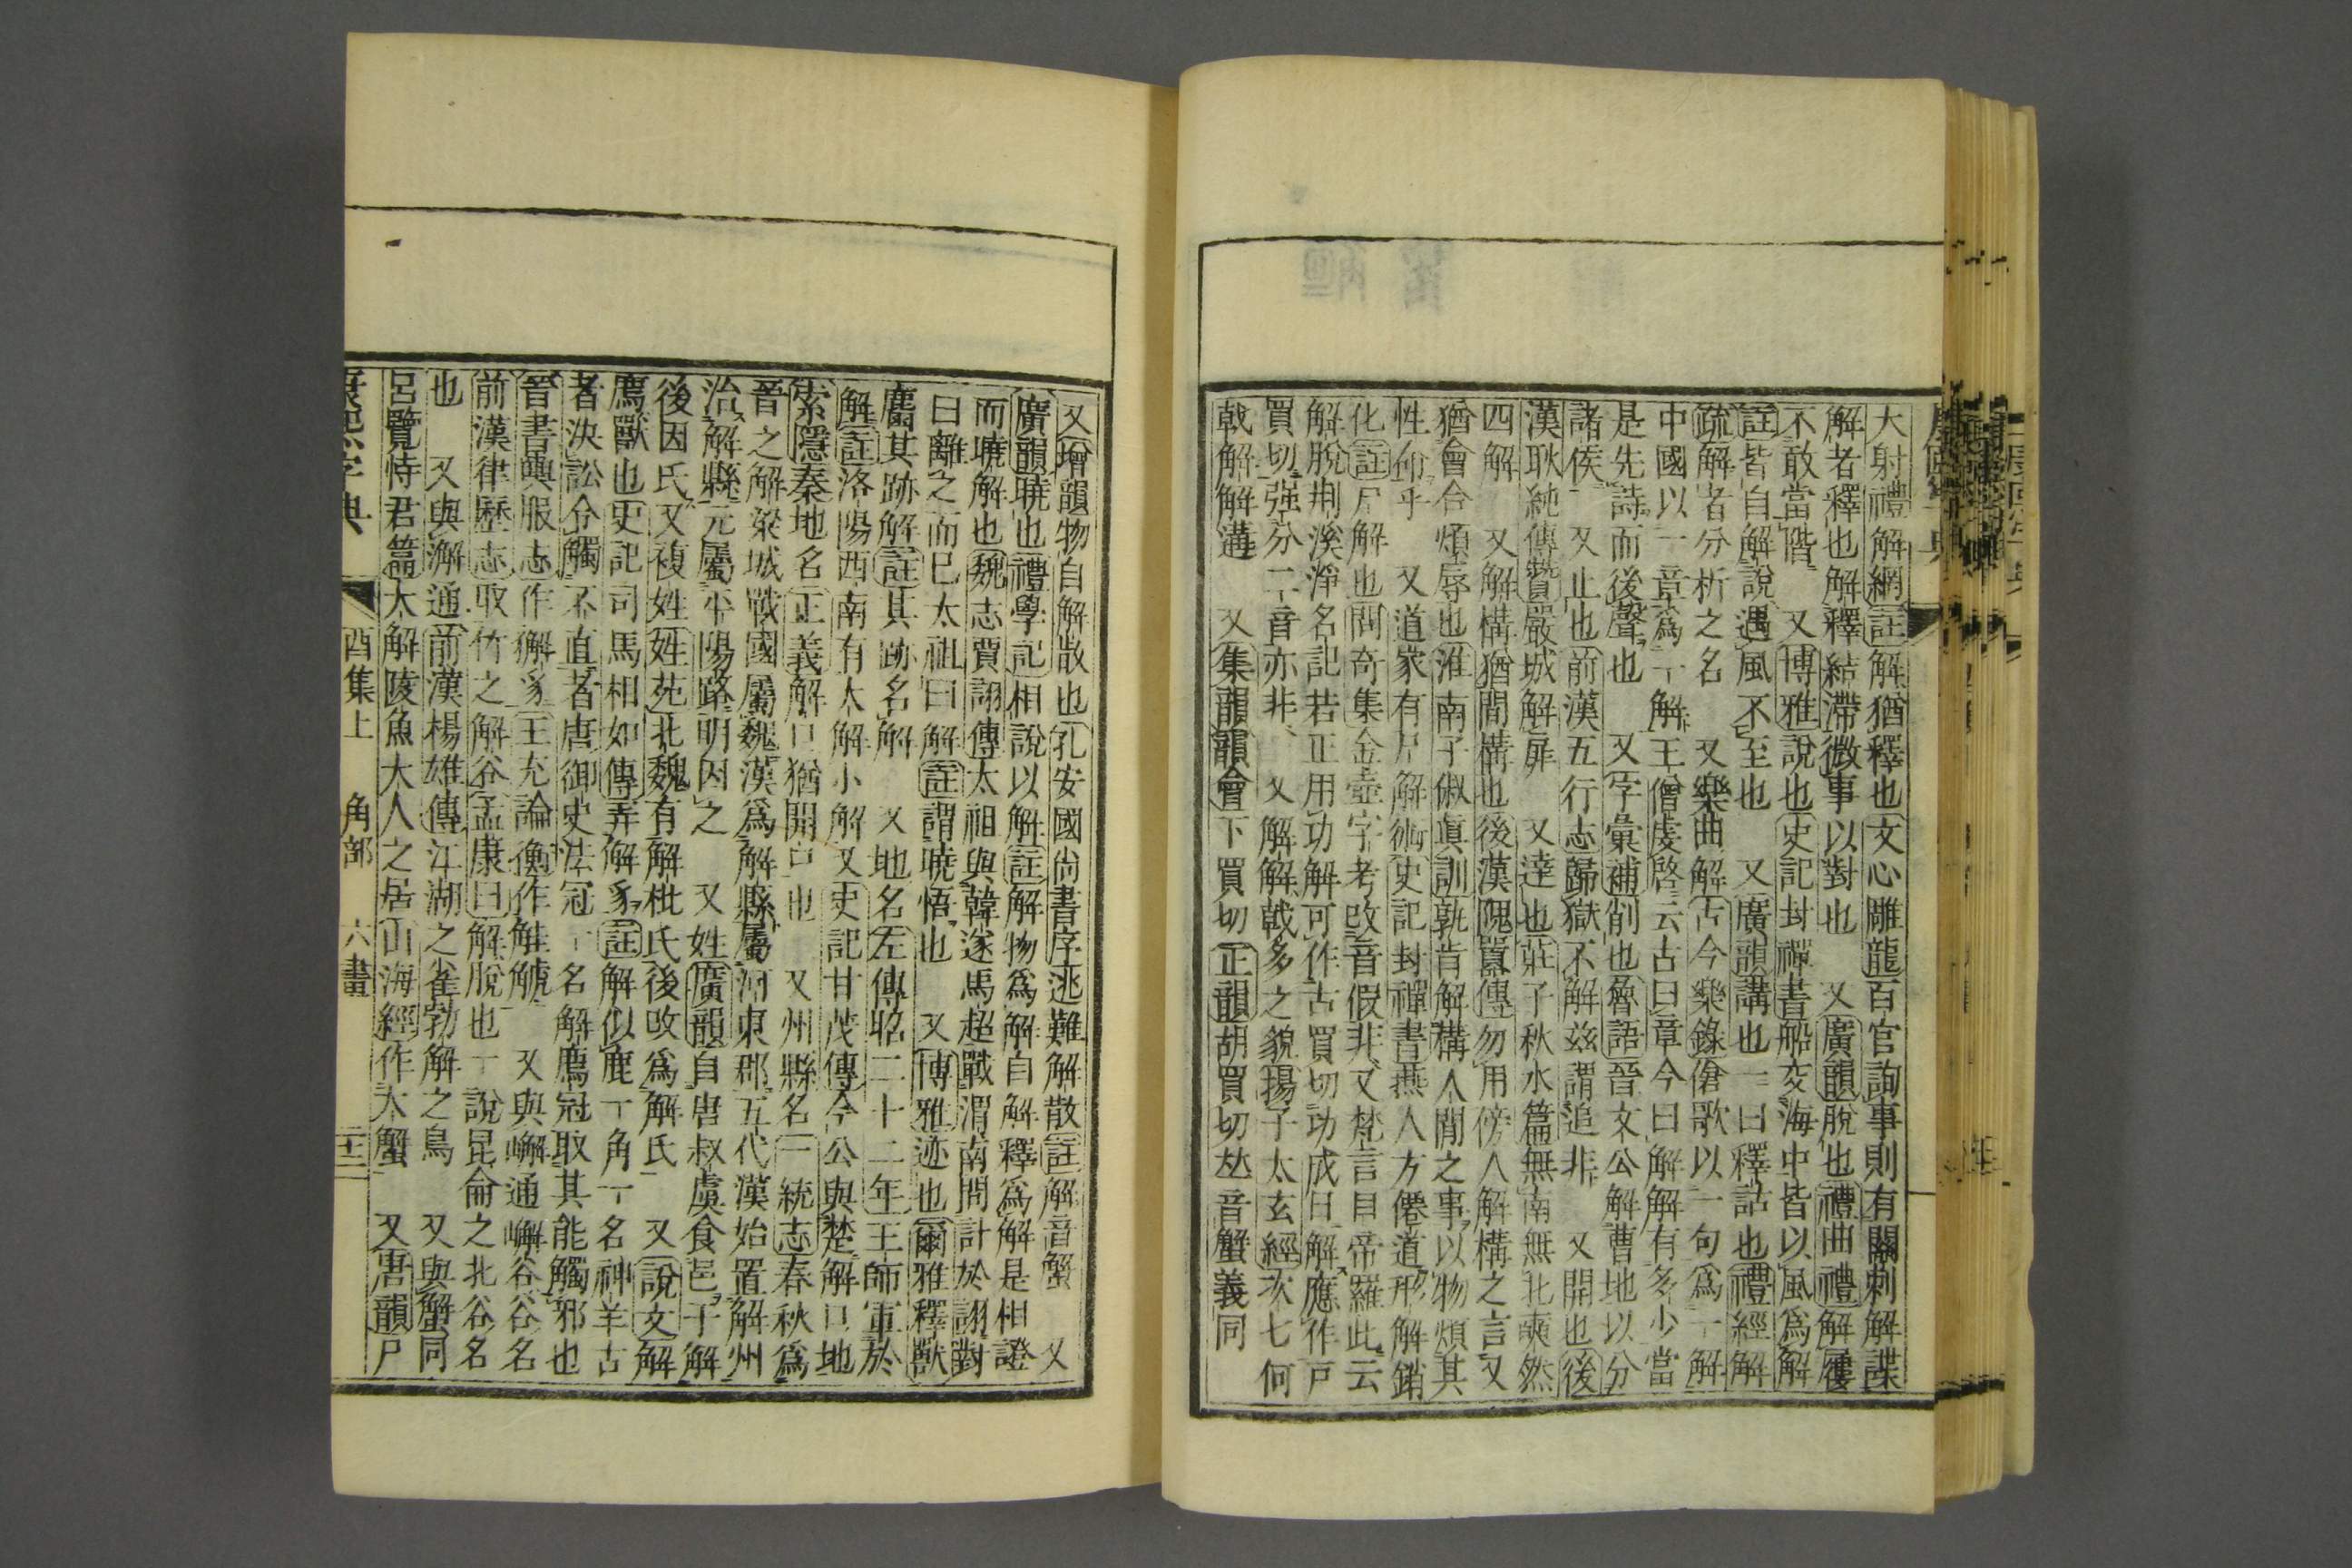 大射禮解綱註解猶釋也文心雕龍百官詢事則有關刺解諜
解者釋也解釋結滯徵事以對也　又廣韻脫也禮曲禮解屨
不敢當階　又博雅說也史記封禪書船交海中皆以風爲解
註皆自解說遇風不至也　又廣韻講也一曰釋詁也禮經解
疏解者分析之名　又樂曲解古今樂錄傖歌以一句爲一解
中國以一章爲一解王僧虔啓云古曰章今曰解解有多少當
是先詩而後聲也　又字彙補削也魯語晉文公解曹地以分
諸侯　又止也前漢五行志歸獄不解茲謂追非　又開也後
漢耿純傳贊嚴城解扉　又達也莊子秋水篇無南無北奭然
四解　又解構猶閒構也後漢隗囂傳勿用傍人解構之言又
猶會合煩辱也淮南子俶眞訓孰肯解構人閒之事以物煩其
性命乎　又道家有尸解術史記封禪書燕人方僊道形解銷
化註尸解也閱奇集金壺字考改音假非又梵言目帝羅此云
解脫荆溪淨名記若正用功解可作古買切功成日解應作戸
買切强分二音亦非　又解解戟多之貌揚子太玄經次七何
戟解解遘　又集韻韻會下買切正韻胡買切𠀤音蟹義同
又增韻物自解散也孔安國尚書序逃難解散註解音蟹　又
廣韻曉也禮學記相說以解註解物爲解自解釋爲解是相證
而曉解也魏志賈詡傳太祖與韓遂馬超戰渭南問計於詡對
曰離之而已太祖曰解註謂曉悟也　又博雅迹也爾雅釋獸
麕其跡解註其跡名解　又地名左傳昭二十二年王師軍於
解註洛陽西南有大解小解又史記甘茂傳今公與楚解口地
索隱秦地名正義解口猶開口也　又州縣名一統志春秋爲
晉之解梁城戰國屬魏漢爲解縣屬河東郡五代漢始置解州
治解縣元屬平陽路明因之　又姓廣韻自唐叔虞食邑于解
後因氏又複姓姓苑北魏有解枇氏後改爲解氏　又說文解
廌獸也史記司馬相如傳弄解豸註解似鹿一角一名神羊古
者決訟令觸不直者唐御史法冠一名解廌冠取其能觸邪也
晉書輿服志作獬豸王充論衡作觟䚦　又與嶰通嶰谷谷名
前漢律歷志取竹之解谷孟康曰解脫也一說昆侖之北谷名
也　又與澥通前漢楊雄傳江湖之雀勃解之鳥　又與蟹同
呂覽恃君篇大解陵魚大人之居山海經作大蟹　又唐韻戸
康熙字典　酉集上　角部　六畫